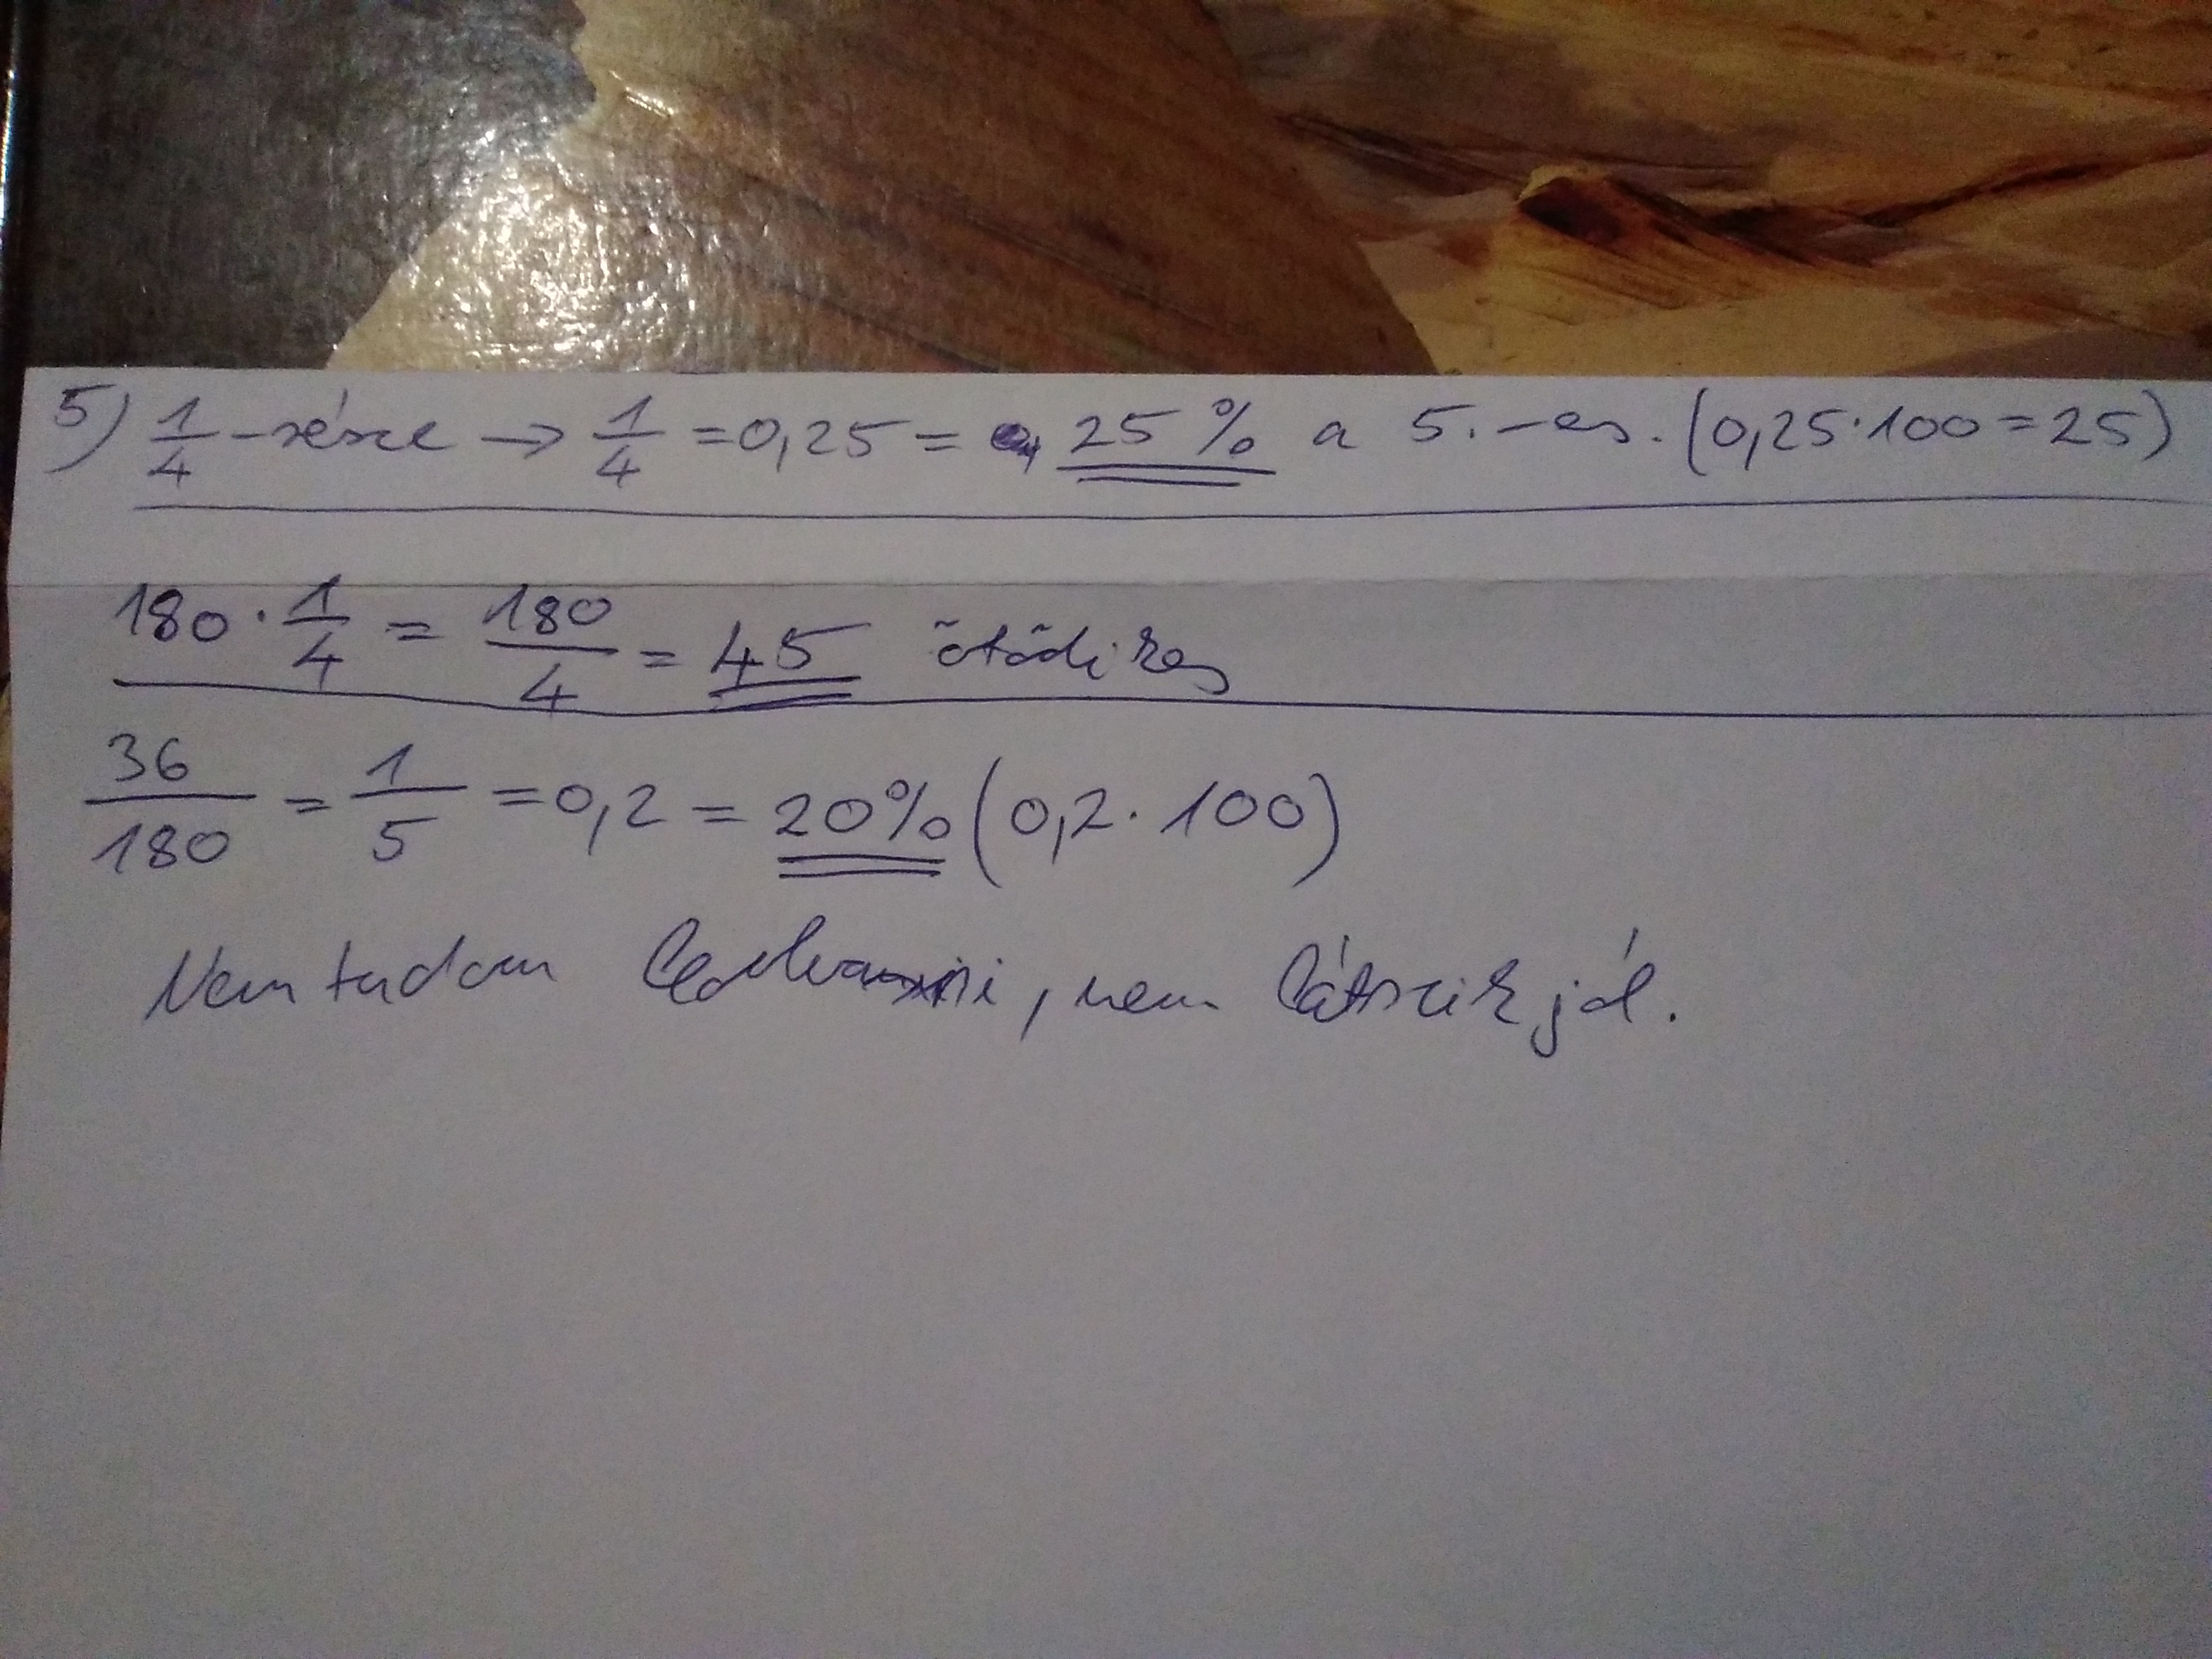 5) 1/4 -része → 1/4 = 0,25 = 25% a 5.-es. (0,25·100=25)
180 · 1/4 = 180/4 = 45 ötödikes
36/180 = 1/5 = 0,2 = 20% (0,2·100)
Nem tudom , nem látszik jól.